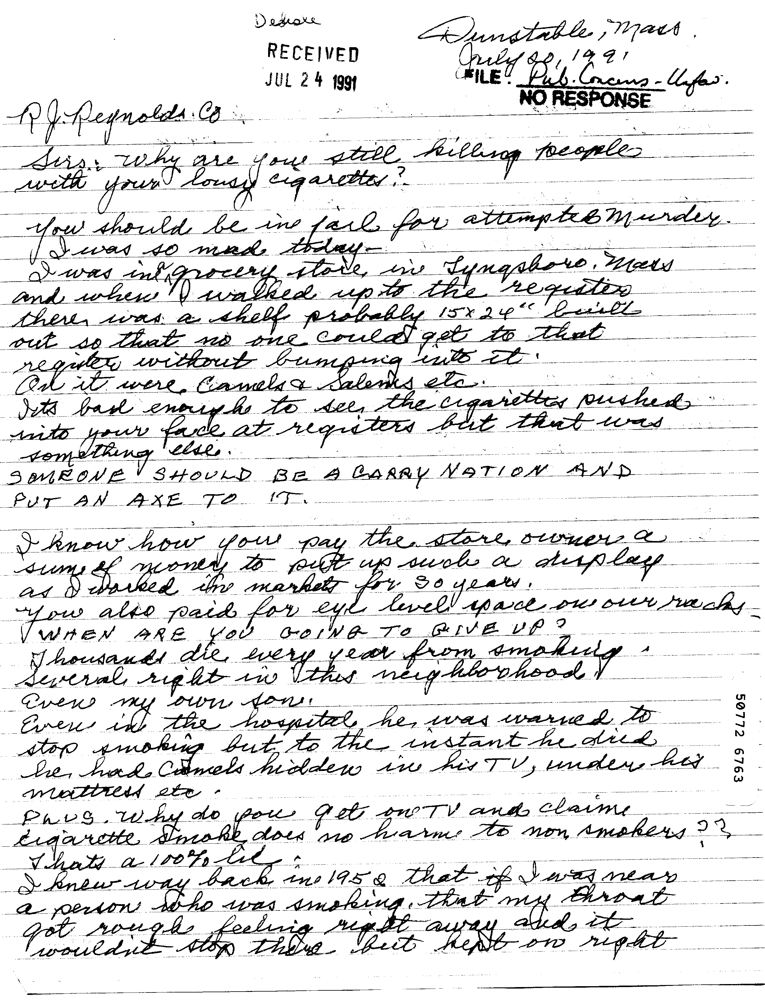 Dunstable, Mass.
RECEIVED
July 20, 1991
JUL 24 1991
FILE: Pub. Concerns - Unfav.
NO RESPONSE
R J. Reynolds. Co
Sirs: Why are you still killing people
with your lousy cigarettes?
You should be in jail for attempted Murder.
I was so mad today-
I was in grocery store in Tyngsboro. Mass
and when I walked up to the register
there was a shelf probably 15x24" built
out so that no one could get to that
register without bumping into it.
On it were Camels & Salems etc.
Its bad enough to see the cigarettes pushed
into your face at registers but that was
something else.
SOMEONE SHOULD BE A CARRY NATION AND
PUT AN AXE TO IT.
I know how you pay the store owner a
sum of money to put up such a display
as I worked in markets for 30 years.
You also paid for eye level space on our racks
WHEN ARE YOU GOING TO GIVE UP?
Thousands die every year from smoking.
Several right in this neighborhood.
Even my own son.
Even in the hospital he was warned to
stop smoking but to the instant he died
he had Camels hidden in his TV, under his
mattress etc.
PLUS. Why do you get on TV and claim
cigarette smoke does no harm to non smokers??
Thats a 100% lie.
I knew way back in 1958 that if I was near
a person who was smoking, that my throat
got rough feeling right away and it
wouldn't stop there but kept on right
50772 6763